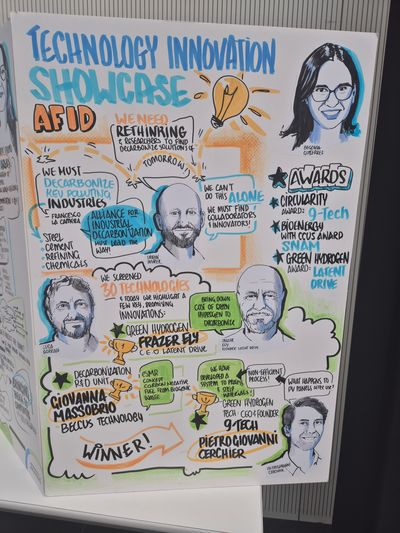 TECHNOLOGY INNOVATION
SHOWCASE
AFID
WE NEED
RETHINKING
& RESEARCHERS TO FIND
DECARBONIZE SOLUTIONS OF
TOMORROW!
WE MUST
DECARBONIZE
KEY POLLUTING
INDUSTRIES
FRANCESCO
LA CAMERA
STEEL
CEMENT
REFINING
CHEMICALS
ALLIANCE FOR
INDUSTRIAL
DECARBONIZATION
MUST LEAD THE
WAY!
WE CAN'T
DO THIS ALONE
WE MUST FIND
COLLABORATORS
& INNOVATORS!
AWARDS
CIRCULARITY
AWARD: 9-TECH
BIOENERGY
WITH CCUS AWARD
SNAM
GREEN HYDROGEN
AWARD: LATENT
DRIVE
WE SCREENED
30 TECHNOLOGIES
& TODAY WE HIGHLIGHT A
FEW KEY, PROMISING
INNOVATIONS:
BRING DOWN
COST OF GREEN
HYDROGEN TO
DECARBONIZE
GREEN HYDROGEN
FRAZER ELY
CEO LATENT DRIVE
LUCA
DECARBONIZATION
R&D UNIT
GIOVANNA
MASSOBRIO
BECCUS TECHNOLOGY
CONCEPT
CARBON NEGATIVE
FUEL FROM BIOGENIC
WASTE
WE HAVE
DEVELOPED A
SYSTEM TO
MATERIALS
NON-EFFICIENT
PROCESS!
WHAT HAPPENS TO
PV PANELS AFTER USE?
GREEN HYDROGEN
TECH · CEO & FOUNDER
9-TECH
PIETROGIOVANNI
CERCHIER
WINNER!
PIETROGIOVANNI
CERCHIER